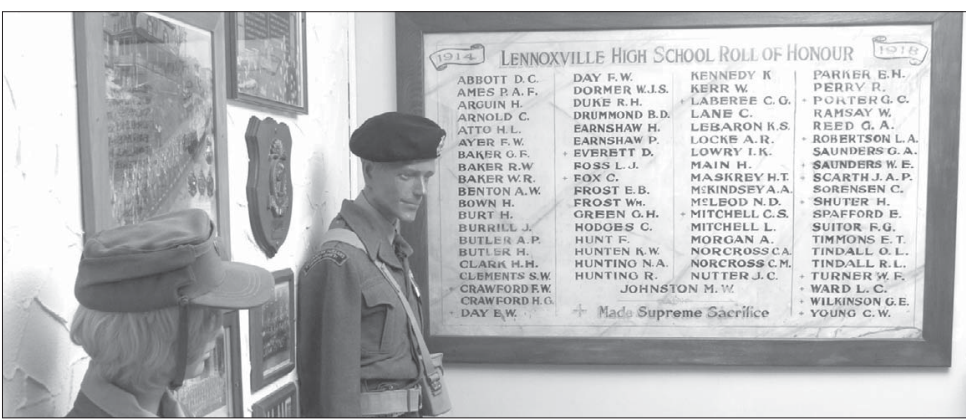 1914
LENNOXVILLE HIGH SCHOOL ROLL OF HONOUR
1918
ABBOTT D.C.
AMES P.A.F.
ARGUIN H.
ARNOLD C.
ATTO H.L.
AYER F.W.
BAKER G.F.
BAKER R.W
BAKER W.R.
BENTON A.W.
BOWN H.
BURT H.
BURRILL J.
BUTLER A.P.
BUTLER H.
CLARK H.H.
CLEMENTS S.W.
+ CRAWFORD F.W.
CRAWFORD H.G.
+ DAY E.W.
DAY F.W.
DORMER W.J.S.
DUKE R.H.
DRUMMOND B.D.
EARNSHAW H.
EARNSHAW P.
+ EVERETT D.
FOSS L.J.
+ FOX C.
FROST E.B.
FROST WM.
GREEN G.H.
HODGES C.
HUNT F.
HUNTEN K.W.
HUNTING N.A.
HUNTING R.
KENNEDY K
KERR W.
+ LABEREE C.G.
LANE C.
LEBARON K.S.
LOCKE A.R.
LOWRY I.K.
MAIN H.
MASKREY H.T.
MCKINDSEY A.A.
MCLEOD N.D.
+ MITCHELL C.S.
MITCHELL L.
MORGAN A.
NORCROSS C.A.
NORCROSS C.M.
NUTTER J.C.
JOHNSTON M.W.
PARKER E.H.
PERRY R.
+ PORTER G.C.
RAMSAY W.
REED G.A.
+ ROBERTSON L.A.
SAUNDERS G.A.
+ SAUNDERS W.E.
+ SCARTH J.A.P.
SORENSEN C.
+ SHUTER H.
SPAFFORD E.
SUITOR F.G.
TIMMONS E.T.
TINDALL O.L.
TINDALL R.L.
+ TURNER W.F.
+ WARD L.C.
+ WILKINSON G.E.
+ YOUNG C.W.
+ Made Supreme Sacrifice